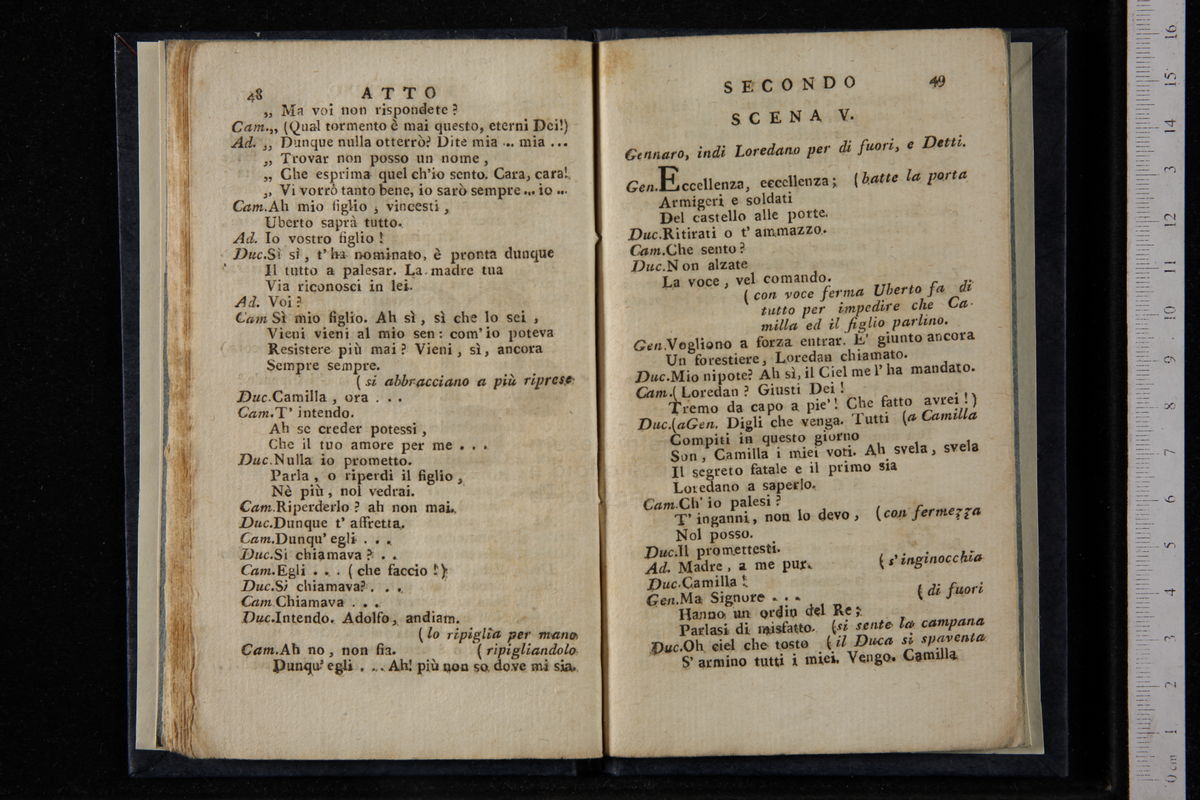 48 ATTO
„ Ma voi non rispondete?
Cam.„ (Qual tormento è mai questo, eterni Dei!)
Ad. „ Dunque nulla otterrò? Dite mia ... mia ...
„ Trovar non posso un nome,
„ Che esprima quel ch'io sento. Cara, cara!
„ Vi vorrò tanto bene, io sarò sempre ... io ...
Cam.Ah mio figlio, vincesti,
Uberto saprà tutto.
Ad. Io vostro figlio!
Duc.Sì sì, t'ha nominato, è pronta dunque
Il tutto a palesar. La madre tua
Via riconosci in lei.
Ad. Voi?
Cam Sì mio figlio. Ah sì, sì che lo sei,
Vieni vieni al mio sen: com'io poteva
Resistere più mai? Vieni, sì, ancora
Sempre sempre.
(si abbracciano a più riprese
Duc.Camilla, ora . . .
Cam.T' intendo.
Ah se creder potessi,
Che il tuo amore per me . . .
Duc.Nulla io prometto.
Parla, o riperdi il figlio,
Nè più, noi vedrai.
Cam.Riperderlo? ah non mai.
Duc.Dunque t' affretta.
Cam.Dunqu' egli . . .
Duc.Si chiamava? . .
Cam.Egli . . . (che faccio!)
Duc.Si chiamava? . . .
Cam Chiamava . . .
Duc.Intendo. Adolfo, andiam.
(lo ripiglia per mano
Cam.Ah no, non fia. (ripigliandolo
Dunqu' egli . .. Ah! più non so dove mi sia.
SECONDO 49
SCENA V.
Gennaro, indi Loredano per di fuori, e Detti.
Gen.Eccellenza, eccellenza; (batte la porta
Armigeri e soldati
Del castello alle porte.
Duc.Ritirati o t' ammazzo.
Cam.Che sento?
Duc.Non alzate
La voce, vel comando.
(con voce ferma Uberto fa di
tutto per impedire che Ca-
milla ed il figlio parlino.
Gen.Vogliono a forza entrar. E' giunto ancora
Un forestiere, Loredan chiamato.
Duc.Mio nipote? Ah sì, il Ciel me l' ha mandato.
Cam.(Loredan? Giusti Dei!
Tremo da capo a pie'! Che fatto avrei!)
Duc.(aGen. Digli che venga. Tutti (a Camilla
Compiti in questo giorno
Son, Camilla i miei voti. Ah svela, svela
Il segreto fatale e il primo sia
Loredano a saperlo.
Cam.Ch' io palesi?
T' inganni, non lo devo, (con fermezza
Nol posso.
Duc.Il promettesti.
Ad. Madre, a me pur. (s' inginocchia
Duc.Camilla!
Gen.Ma Signore . . . (di fuori
Hanno un ordin del Re;
Parlasi di misfatto. (si sente la campana
Duc.Oh ciel che tosto (il Duca si spaventa
S' armino tutti i miei. Vengo. Camilla